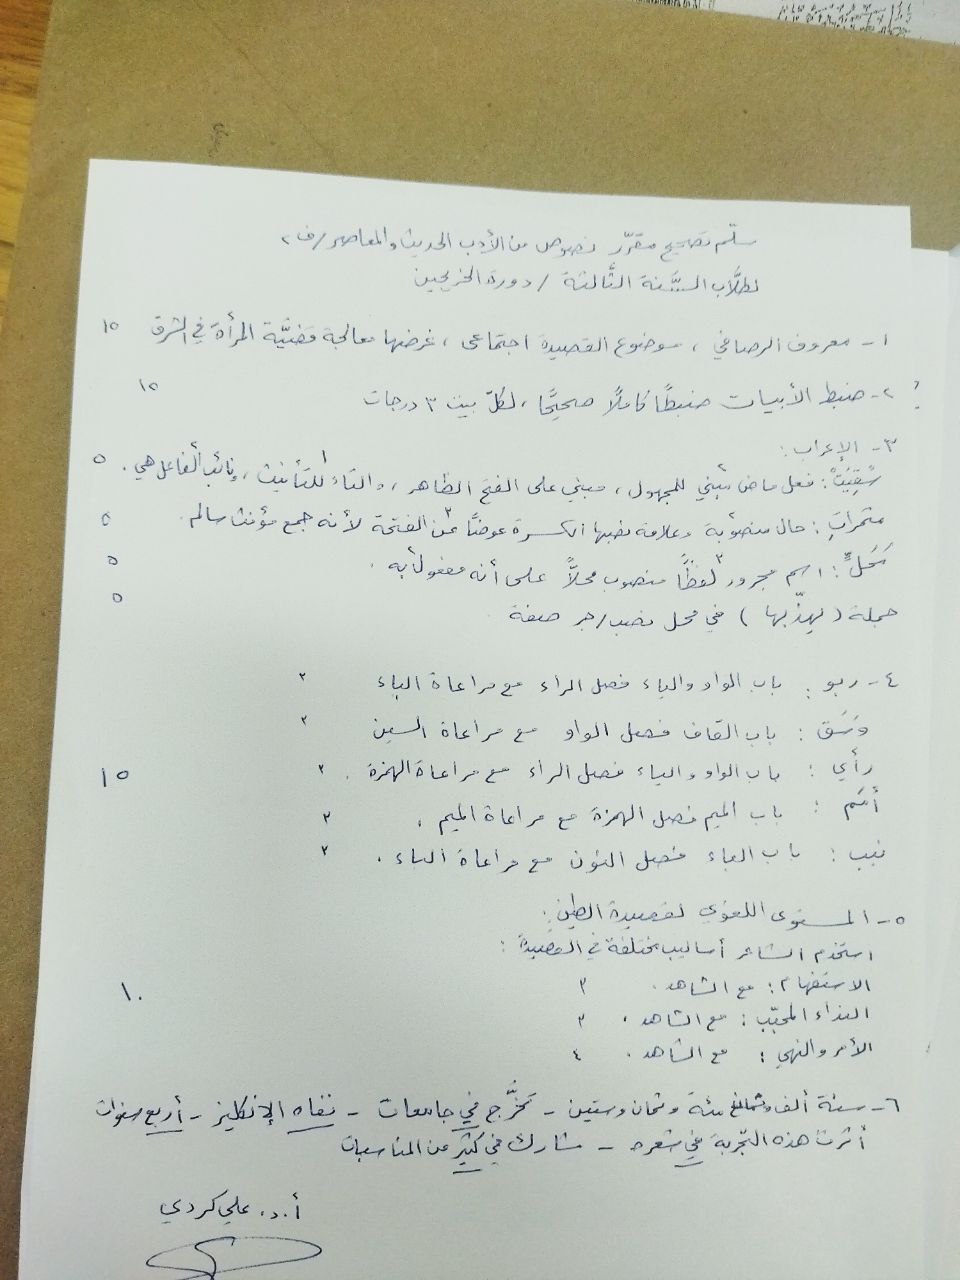 سلّم تصحيح مقرّر نصوص من الأدب الحديث والمعاصر/ف٢
لطلَّاب السَّنة الثَّالثة / دورة الخريجين
١- معروف الرصافي ، موضوع القصيدة اجتماعي ، غرضها معالجة قضيَّة المرأة في الشرق ١٥
٢- ضبط الأبيات ضبطًا كاملًا صحيحًا ، لكلّ بيت ٣ درجات ١٥
٣- الإعراب :
سُقِيَتْ : فعل ماض مبني للمجهول ، مبني على الفتح الظاهر ، والتاء للتأنيث ، ونائب الفاعل هي . ٥
مثمراتٍ : حال منصوبة وعلامة نصبها الكسرة عوضًا عن الفتحة لأنه جمع مؤنث سالم . ٥
: اسم مجرور لفظًا منصوب محلاً على أنه مفعول به . ٥
جملة ( يهذّبها ) في محل نصب/جر صفة ٥
٤- ربو : باب الواو والياء فصل الراء مع مراعاة الباء ٣
وَسَق : باب القاف فصل الواو مع مراعاة السين ٣
رأي : باب الواو والياء فصل الراء مع مراعاة الهمزة . ٣ ١٥
أمم : باب الميم فصل الهمزة مع مراعاة الميم . ٣
نبب : باب الباء فصل النون مع مراعاة الباء . ٣
٥- المستوى اللغوي لقصيدة الطين :
استخدم الشاعر أساليب مختلفة في القصيدة :
الاستفهام : مع الشاهد . ٣ ١٠
النداء المحبّب : مع الشاهد . ٣
الأمر والنهي : مع الشاهد . ٤
٦- سنة ألف وثمانمئة وثمان وستين - تخرَّج في جامعات - نفاه الإنكليز - أربع سنوات
أثرت هذه التجربة في شعره - مشارك في كثير من المناسبات
أ.د. علي كردي